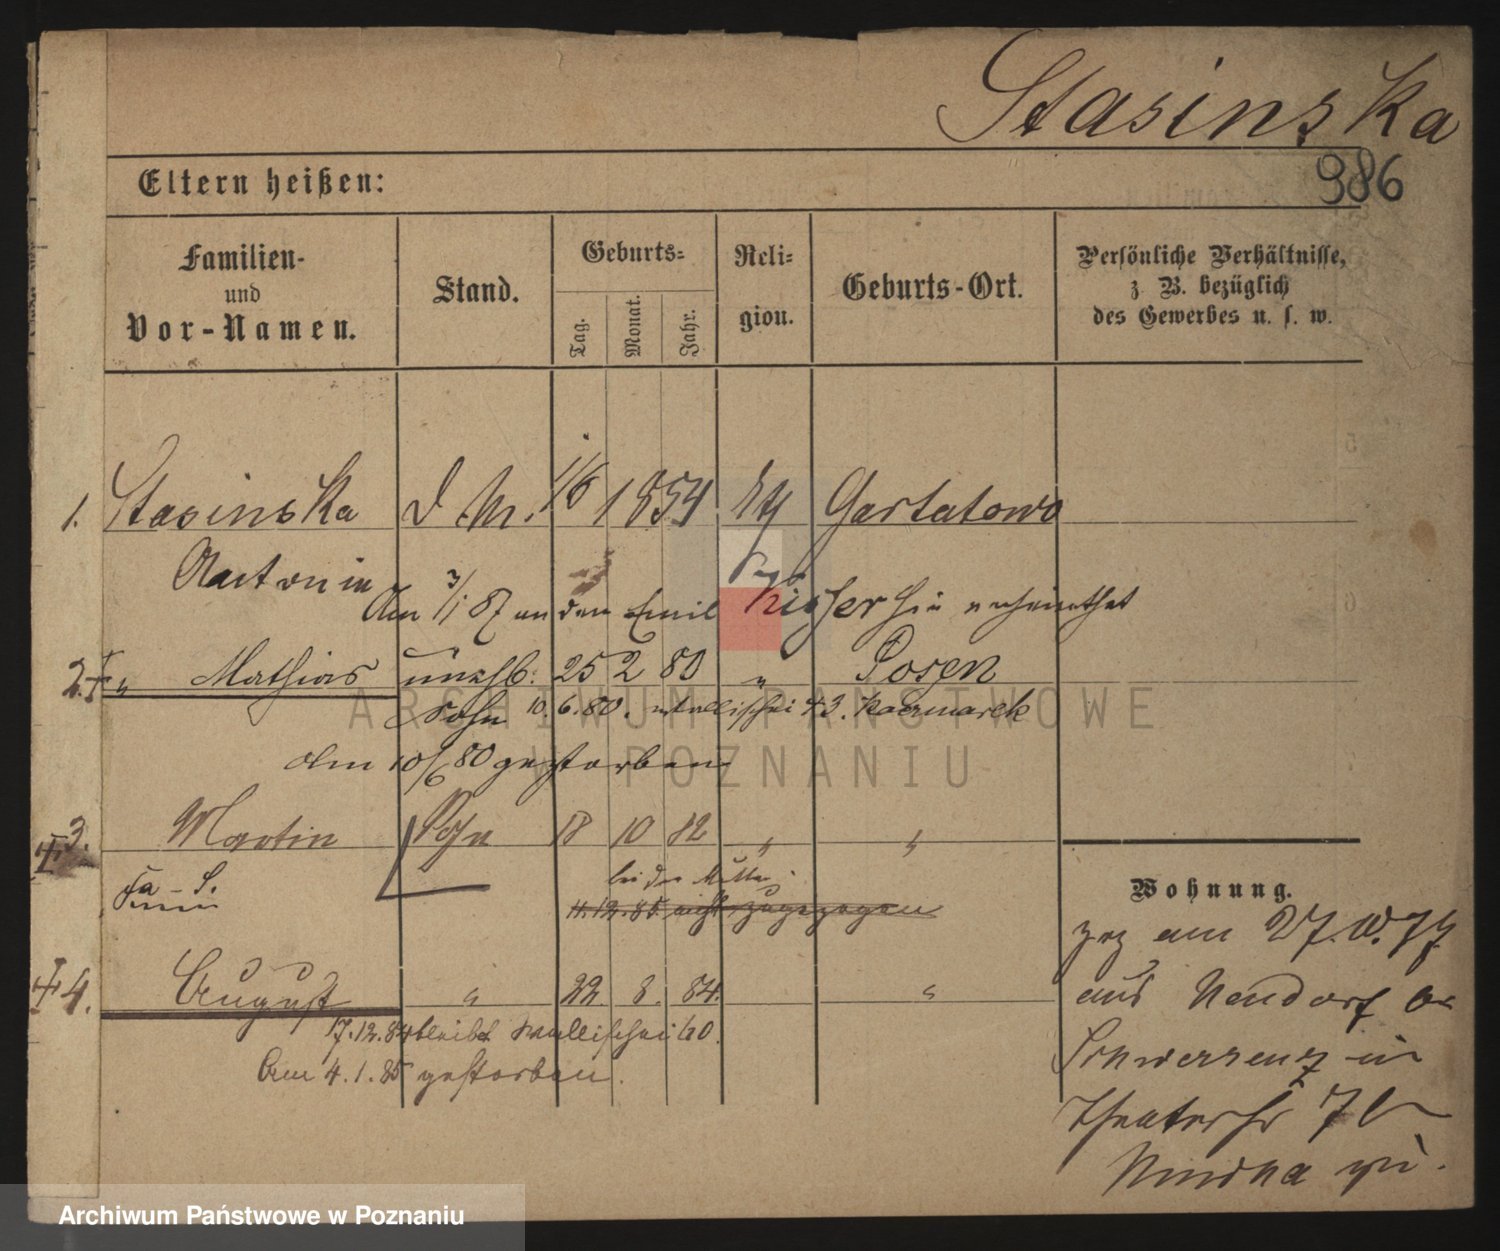 Stasinska
986
Eltern heißen:
Familien-
und
Vor-Namen.
Stand.
Geburts-
Tag.
Monat.
Jahr.
Reli-
gion.
Geburts-Ort.
Persönliche Verhältnisse,
z. B. bezüglich
des Gewerbes u. s. w.
1. Stasinska D. M. 1/6 1854 Gartatowo
Antonin
Am 3/1 87 an den Emil hie verheirathet
2. " Mathias unehl. 25 2 80 " Posen
Sohn 10.6.80. Wallischei 43. Kaczmarek
Am 10/6 80 gestorben
3. Martin Sohn 18 10 82 " "
bei der Mutter
11.12.85 nicht zugezogen
4. August " 22 8. 84. "
17.12.84 bleibt Wallischei 60.
Am 4.1.85 gestorben.
Wohnung.
zog am 27.
aus Neudorf
Schwersenz in
Theaterstr 7
ARCHIWUM PAŃSTWOWE
W POZNANIU
Archiwum Państwowe w Poznaniu